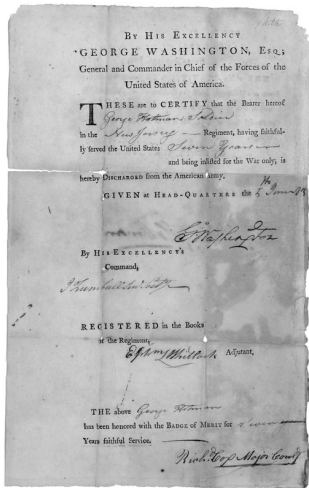 BY HIS EXCELLENCY
GEORGE WASHINGTON, ESQ;
General and Commander in Chief of the Forces of the
United States of America.
THESE are to CERTIFY that the Bearer hereof
George Hotman Soldier
in the New Jersey Regiment, having faithful-
ly served the United States Seven Years
and being inlisted for the War only, is
hereby DISCHARGED from the American Army.
GIVEN at HEAD-QUARTERS the 5th June
Go Washington
BY HIS EXCELLENCY'S
Command,
J Trumbull
REGISTERED in the Books
of the Regiment,
Ephm Whitlock Adjutant,
THE above George Hotman
has been honored with the BADGE of MERIT for Seven
Years faithful Service.
Richd Cox Major Comdt